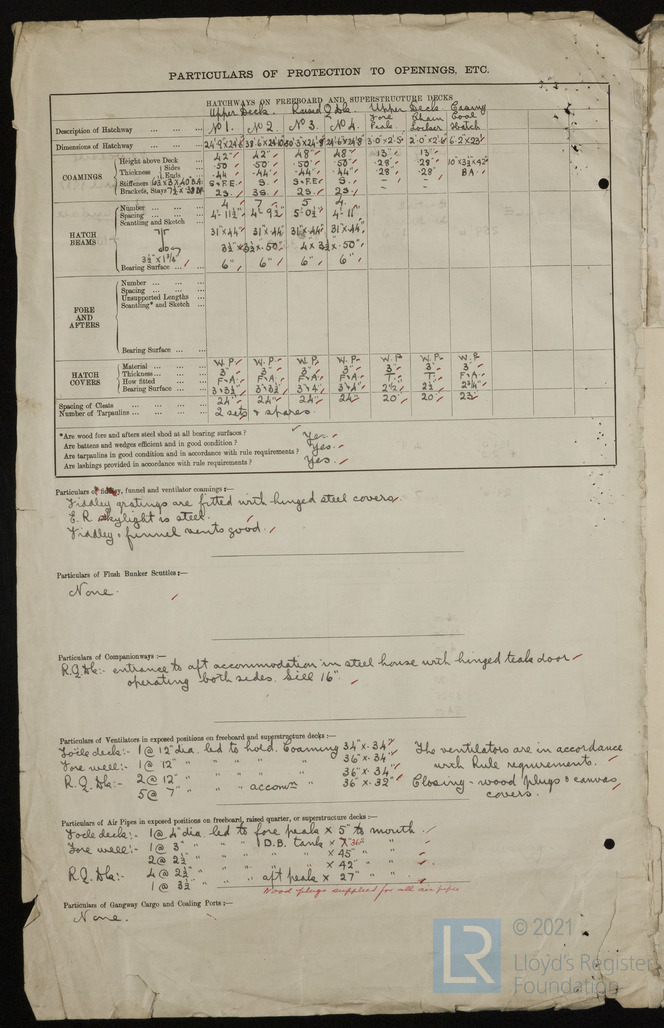 PARTICULARS OF PROTECTION TO OPENINGS, ETC.
HATCHWAYS ON FREEBOARD AND SUPERSTRUCTURE DECKS
Upper Deck. Raised Q Dk. Upper Deck Casing
Fore Peak Chain Locker Coal Hatch
Description of Hatchway ... ... ... No 1. No 2. No 3. No 4.
Dimensions of Hatchway ... ... ... 3'.0"x2'.5" 2'.0"x2'.6" 6'.2"x23"
COAMINGS
Height above Deck ... 42" 42" 48" 48" 13" 13" 10"x3½"x42"
Thickness { Sides ... .50 .50 .50 .50 .28 .28 BA.
Ends ... .44 .44 .44 .44 .28 .28
Stiffeners S.F.E. S. S.F.E. S. – –
Brackets, Stays 2s. 3s. 2s. 2s. –
HATCH BEAMS
Number ... ... ... 4 7 5 4
Spacing ... ... ... 4'-11½" 4'-9½" 5'-0½" 4'-11"
Scantling and Sketch ...
31"x.44" 31"x.44" 31"x.44" 31"x.44"
3½"x3½x.50" 4x3½x.50"
Bearing Surface ... 6" 6" 6" 6"
FORE AND AFTERS
Number ... ... ...
Spacing ... ... ...
Unsupported Lengths ...
Scantling* and Sketch ...
Bearing Surface ... ...
HATCH COVERS
Material ... ... ... W.P. W.P. W.P. W.P. W.P. W.P. W.P.
Thickness ... ... ... 3" 3" 3" 3" 3" 3" 3"
How fitted ... ... F&A. F&A. F&A. F&A. T. T. F&A.
Bearing Surface ... 3&3½" 3&3½" 3&4" 3&4" 2½ 2½ 2¾"
Spacing of Cleats ... ... ... 24" 24" 24" 24" 20" 20" 23"
Number of Tarpaulins ... ... ... 2 sets & spares
*Are wood fore and afters steel shod at all bearing surfaces?
Are battens and wedges efficient and in good condition? Yes.
Are tarpaulins in good condition and in accordance with rule requirements? Yes.
Are lashings provided in accordance with rule requirements? Yes.
Particulars of fiddley, funnel and ventilator coamings:—
Fiddley gratings are fitted with hinged steel covers
E.R. skylight is steel.
Fiddley & funnel vents good.
Particulars of Flush Bunker Scuttles:—
None.
Particulars of Companionways:—
R.Q.Dk:- entrance to aft accommodation in steel house with hinged teak door
operating both sides. Sill 16".
Particulars of Ventilators in exposed positions on freeboard and superstructure decks:—
Fo'cle deck:- 1 @ 12" dia. led to hold. Coaming 34"x.34" The ventilators are in accordance
Fore well:- 1 @ 12" " " " " 36"x.34" with Rule requirements.
R.Q.Dk:- 2 @ 12" " " " " 36"x.34" Closing - wood plugs & canvas
5 @ 7" " " accomn " 36"x.32" covers.
Particulars of Air Pipes in exposed positions on freeboard, raised quarter, or superstructure decks:—
Fo'cle deck:- 1 @ 4" dia. led to fore peak x 5" to mouth.
Fore well:- 1 @ 3" " " " D.B. tank x 36" " "
2 @ 2½" " " " " x 45" " "
" x 42" " "
R.Q.Dk:- 4 @ 2½" " " " aft peak x 27" " "
1 @ 3½" " "
Wood plugs supplied for all air pipes
Particulars of Gangway Cargo and Coaling Ports:—
None.
LR © 2021
Lloyd's Register
Foundation